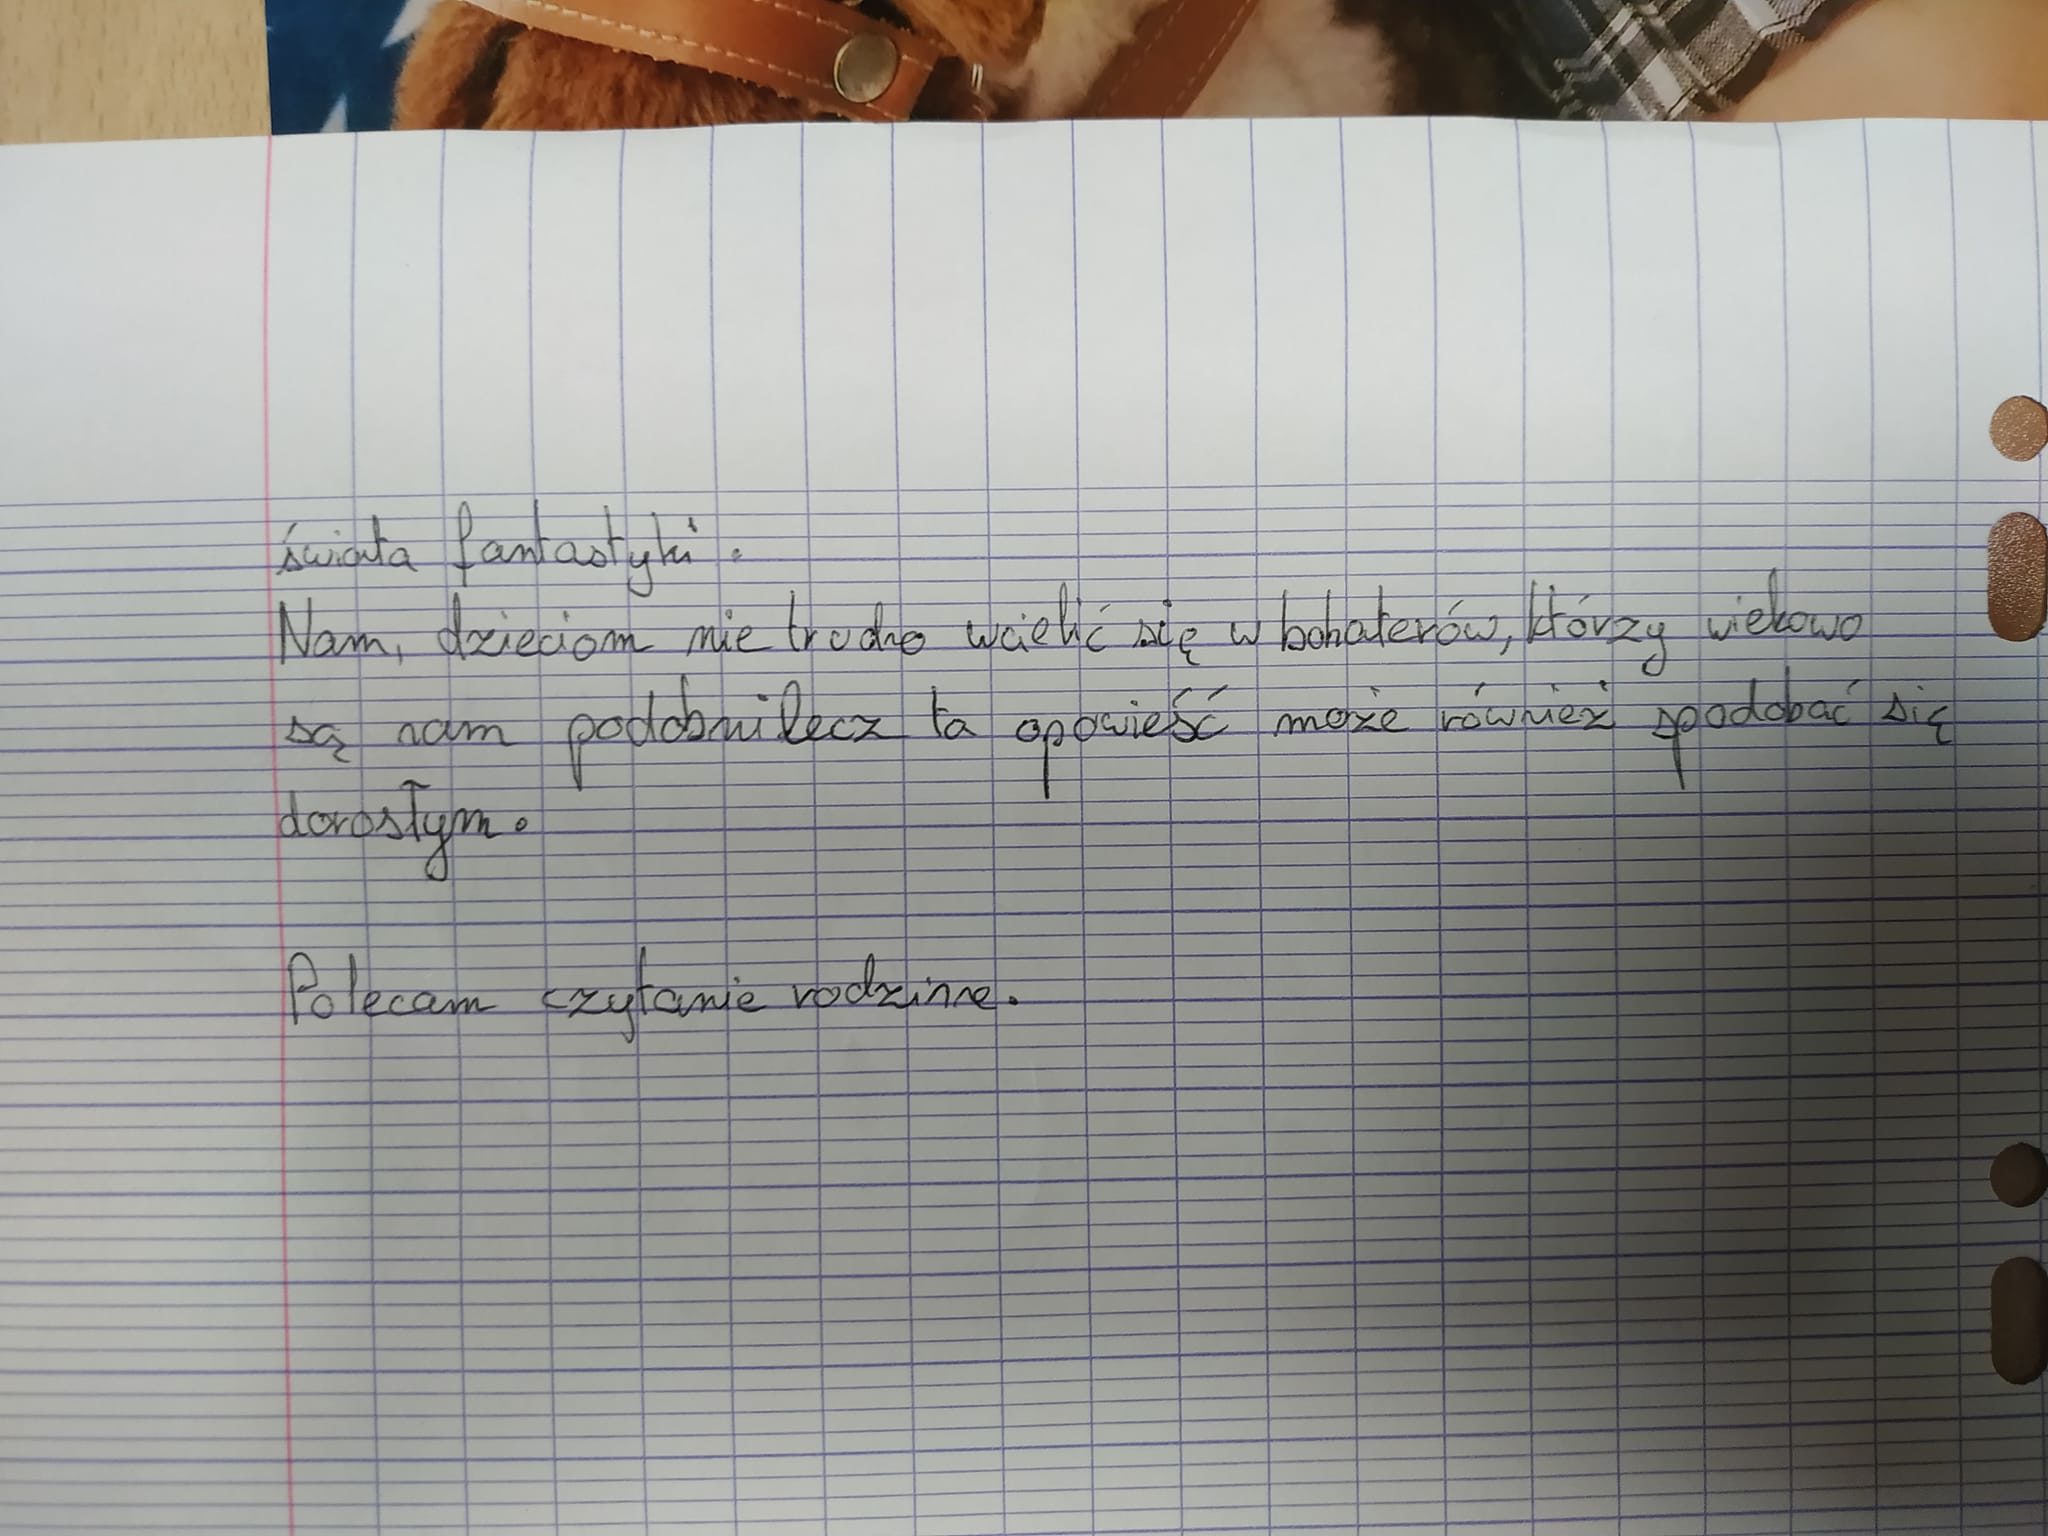 świata fantastyki.
Nam, dzieciom nie trudno wcielić się w bohaterów, którzy wiekowo
są nam podobni lecz ta opowieść może również spodobać się
dorosłym.
Polecam czytanie rodzinne.